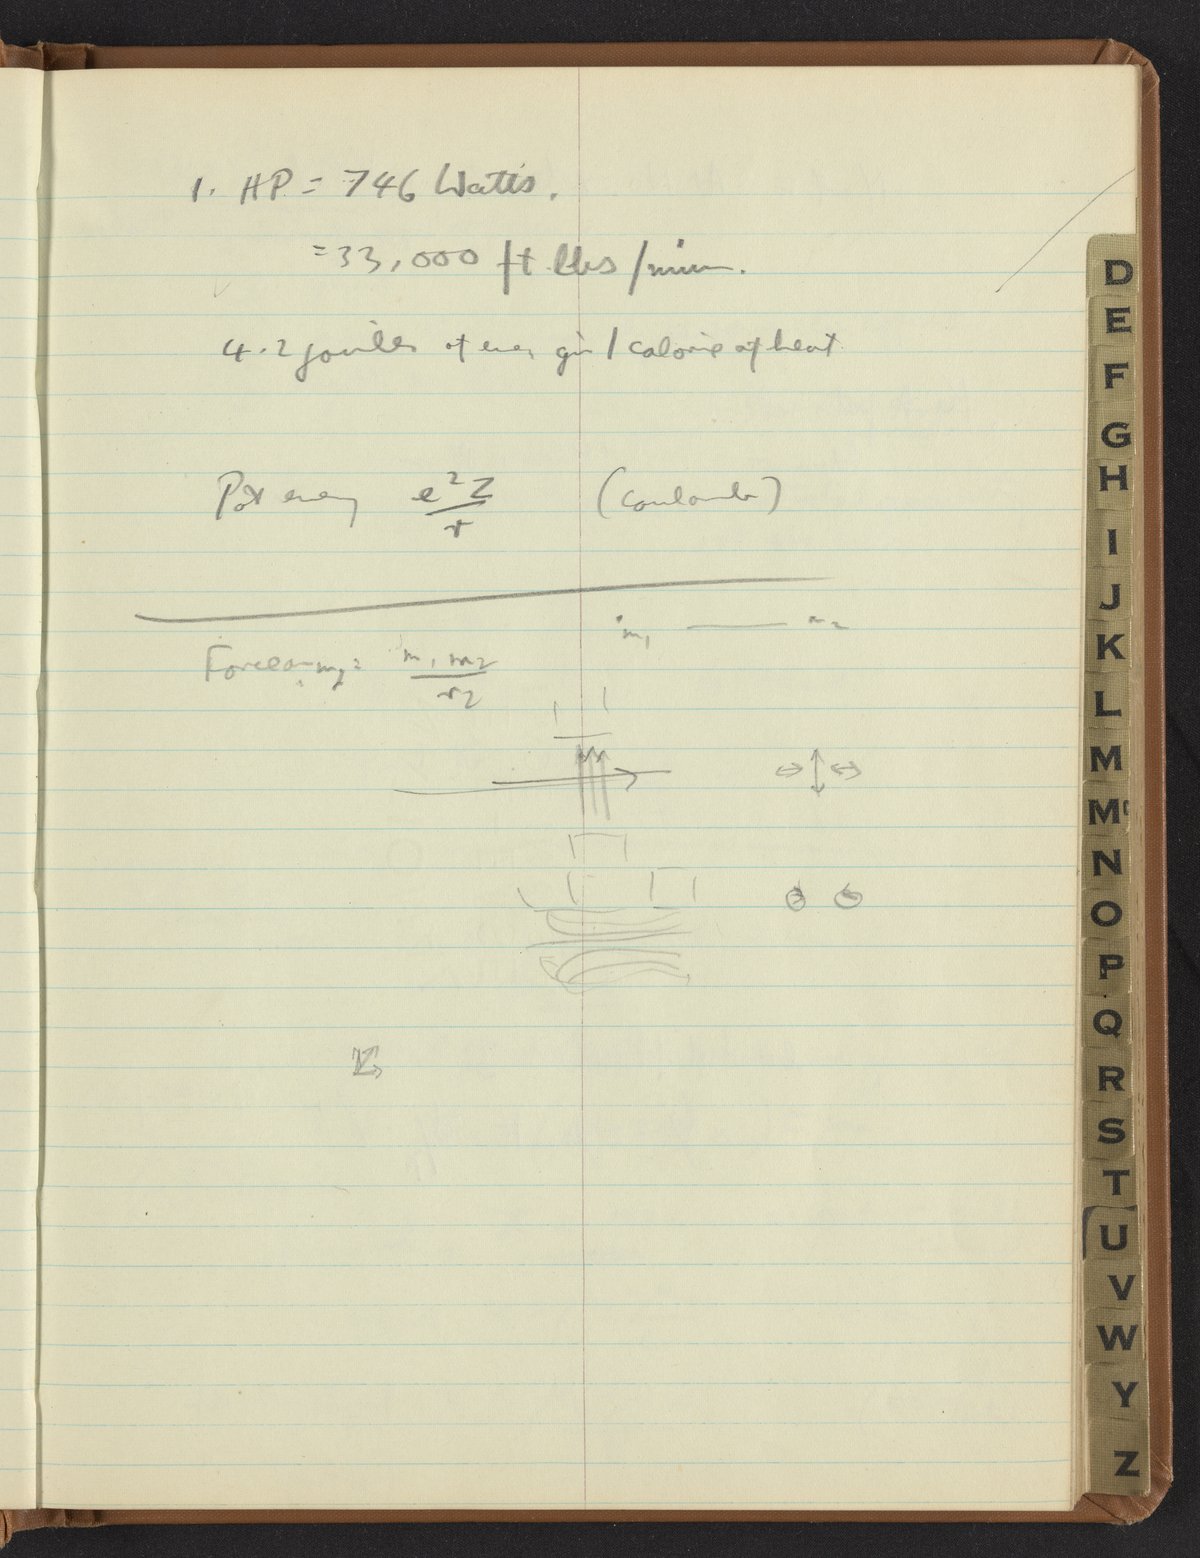 1. HP = 746 Watts.
= 33,000 ft lbs/min.
4.2 joules of energy / calorie of heat
Pot energy e²Z/r (Coulomb)
m₁ m₂
Force on m₂ = m₁ m₂/r₂
D
E
F
G
H
I
J
K
L
M
Mc
N
O
P
Q
R
S
T
U
V
W
Y
Z